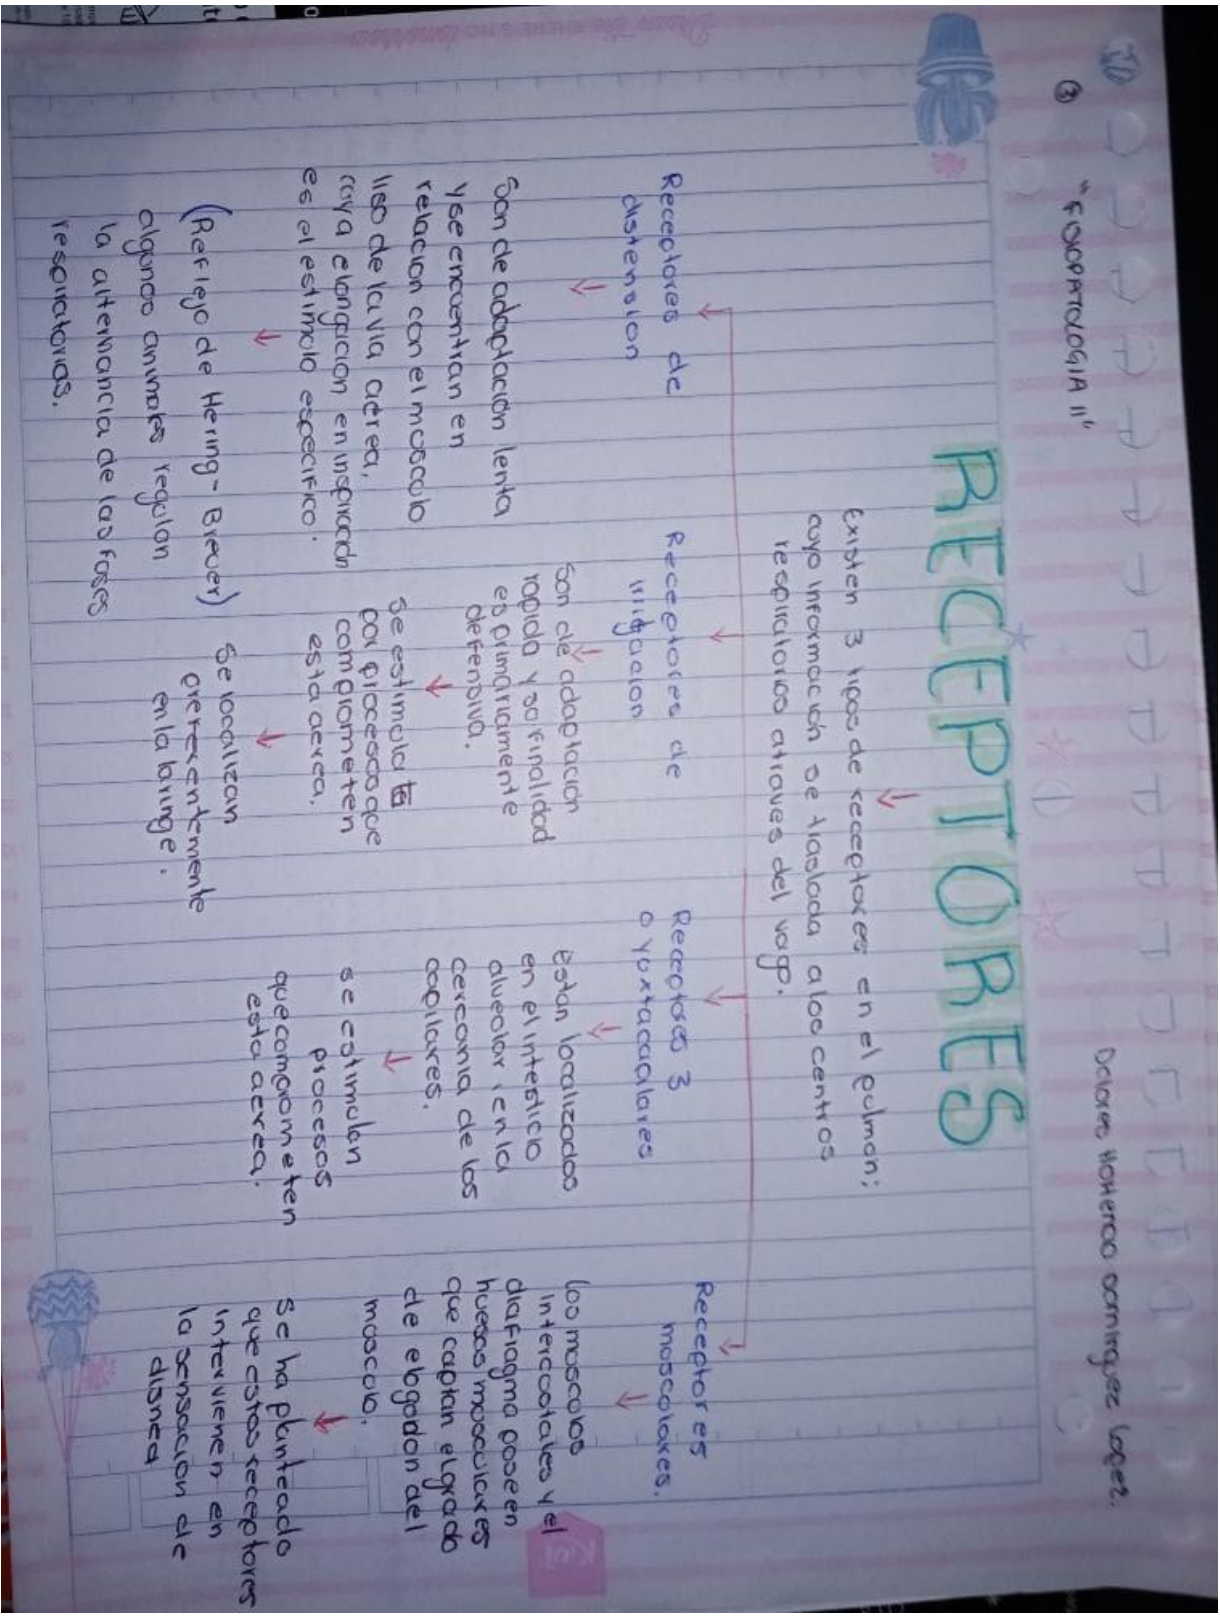 ③ "FISIOPATOLOGIA II"
Dolores Hortencia Dominguez Lopez.
RECEPTORES
Existen 3 tipos de receptores en el pulmon;
cuya informacion se traslada a los centros
respiratorios atraves del vago.
Receptores de
distension
Son de adaptación lenta
y se encuentran en
relacion con el musculo
liso de la via aerea,
cuya elongacion en inspiracion
es el estimulo especifico.
(Reflejo de Hering-Breuer)
algunos animales regulan
la alternancia de las fases
respiratorias.
Receptores de
irritacion
Son de adaptacion
rapida y su finalidad
es primariamente
defensiva.
Se estimula
por procesos que
comprometen
esta aerea.
Se localizan
preferentemente
en la laringe.
Receptores 3
o yuxtacapilares
Estan localizados
en el intesticio
alveolar, en la
cercania de los
capilares.
se estimulan
procesos
que comprometen
esta aerea.
Receptores
musculares.
los musculos
intercostales y el
diafragma poseen
huesos musculares
que captan el grado
de elogadon del
musculo.
Se ha planteado
que estos receptores
intervienen en
la sensacion de
disnea